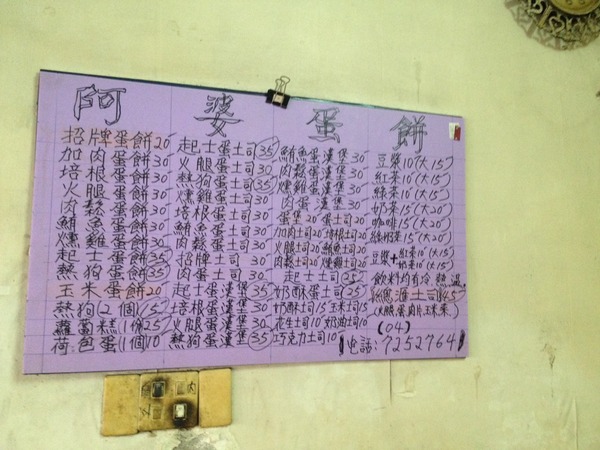 阿婆蛋餅
招牌蛋餅20
加肉蛋餅30
培根蛋餅30
火腿蛋餅30
肉鬆蛋餅30
鮪魚蛋餅30
燻雞蛋餅30
起士蛋餅35
熱狗蛋餅35
玉米蛋餅20
熱狗(2個)15
蘿蔔糕(1份)25
荷包蛋(1個)10
起士蛋土司35
火腿蛋土司30
熱狗蛋土司35
燻雞蛋土司30
培根蛋土司30
鮪魚蛋土司30
肉鬆蛋土司30
招牌土司30
肉蛋土司30
起士蛋漢堡35
培根蛋漢堡30
火腿蛋漢堡30
熱狗蛋漢堡35
鮪魚蛋漢堡30
肉鬆蛋漢堡30
燻雞蛋漢堡30
肉蛋漢堡30
蛋堡20 蛋土司20
加肉土司20 培根土司20
火腿土司20 鮪魚土司20
肉鬆土司20 燻雞土司20
起士土司25
奶酥蛋土司25
奶酥土司15 玉米土司15
花生土司10 奶油土司10
巧克力土司10
豆漿10(大15)
紅茶10(大15)
綠茶10(大15)
奶茶15(大20)
咖啡15(大20)
綠奶茶15(大20)
豆漿+紅茶10(大15)
奶茶15(大20)
飲料均有冰.熱.溫.
總匯土司45
(火腿.蛋.肉片.玉米.菜)
(04)
電話:7252764